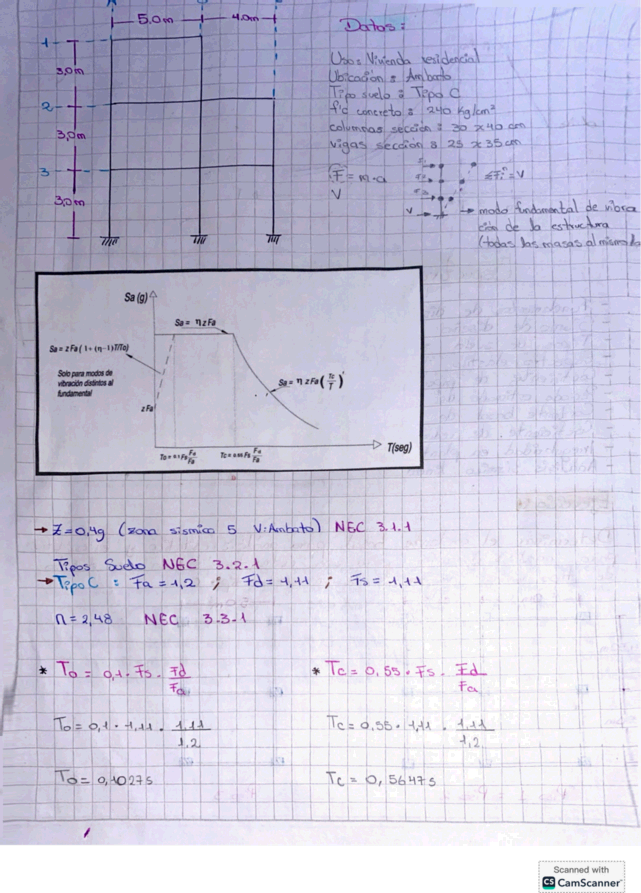 5.0m 4.0m
1
3,0m
2
3,0m
3
3,0m
Datos:
Uso: Vivienda residencial
Ubicación: Ambato
Tipo suelo: Tipo C
f'c concreto: 240 kg/cm²
columnas sección: 30 x 40 cm
vigas sección: 25 x 35 cm
F = m·a
V
ΣFi = V
V → modo fundamental de vibra
ción de la estructura
(todas las masas al mismo la
Sa (g)
Sa = η z Fa
Sa = z Fa ( 1 + (η -1)T/To)
Solo para modos de
vibración distintos al
fundamental
Sa = η z Fa (Tc/T)^r
z Fa
To = 0.1 Fs Fd/Fa
Tc = 0.55 Fs Fd/Fa
T(seg)
→ Z=0,4g (zona sísmica 5 V:Ambato) NEC 3.1.1
Tipos Suelo NEC 3.2.1
→ Tipo C : Fa = 1,2 ; Fd = 1,11 ; Fs = 1,11
n = 2,48 NEC 3.3.1
* To = 0,1 · Fs · Fd/Fa
* Tc = 0,55 · Fs · Fd/Fa
To = 0,1 · 1,11 · 1,11/1,2
Tc = 0,55 · 1,11 · 1,11/1,2
To = 0,1027s
Tc = 0,5647s
Scanned with
CS CamScanner